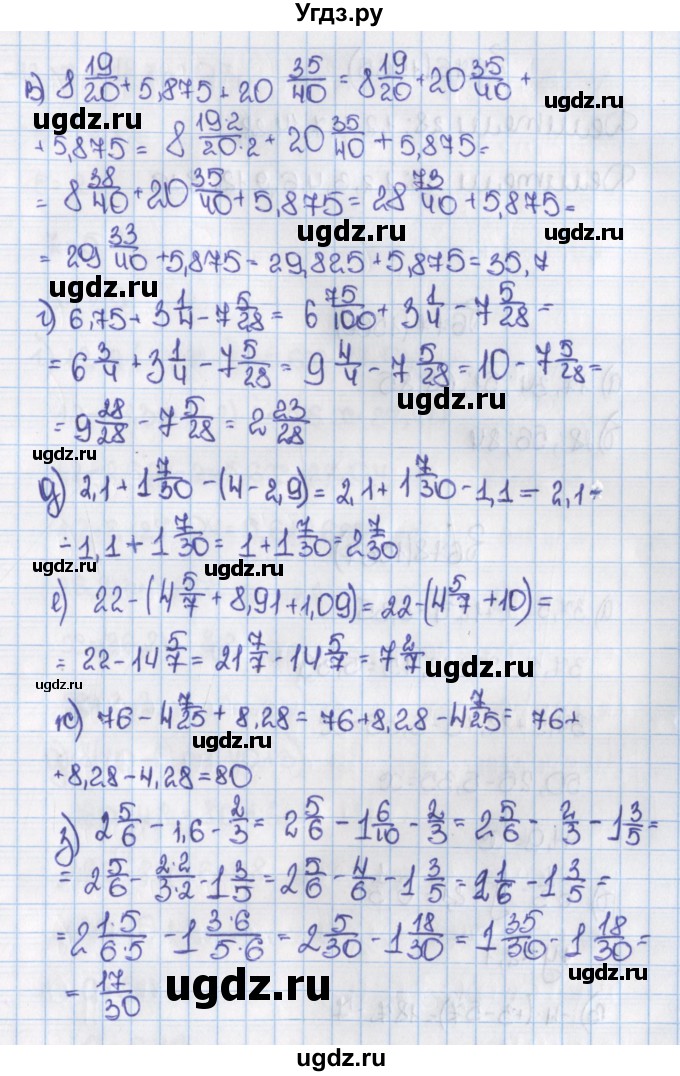 Угдз.ру
в) 8 19/20 + 5,875 + 20 35/40 = 8 19/20 + 20 35/40 +
ugdz.ru
ugdz.ru
+ 5,875 = 8 19·2/20·2 + 20 35/40 + 5,875 =
= 8 38/40 + 20 35/40 + 5,875 = 28 73/40 + 5,875 =
ugdz.ru
ugdz.ru
= 29 33/40 + 5,875 = 29,825 + 5,875 = 35,7
ugdz.ru
г) 6,75 + 3 1/4 - 7 5/28 = 6 75/100 + 3 1/4 - 7 5/28 =
ugdz.ru
= 6 3/4 + 3 1/4 - 7 5/28 = 9 4/4 - 7 5/28 = 10 - 7 5/28 =
ugdz.ru
= 9 28/28 - 7 5/28 = 2 23/28
ugdz.ru
ugdz.ru
д) 2,1 + 1 7/30 - (4 - 2,9) = 2,1 + 1 7/30 - 1,1 = 2,1 -
- 1,1 + 1 7/30 = 1 + 1 7/30 = 2 7/30
ugdz.ru
ugdz.ru
е) 22 - (4 5/7 + 8,91 + 1,09) = 22 - (4 5/7 + 10) =
= 22 - 14 5/7 = 21 7/7 - 14 5/7 = 7 2/7
ugdz.ru
ugdz.ru
ж) 76 - 4 7/25 + 8,28 = 76 + 8,28 - 4 7/25 = 76 +
ugdz.ru
+ 8,28 - 4,28 = 80
ugdz.ru
з) 2 5/6 - 1,6 - 2/3 = 2 5/6 - 1 6/10 - 2/3 = 2 5/6 - 2/3 - 1 3/5 =
ugdz.ru
= 2 5/6 - 2·2/3·2 - 1 3/5 = 2 5/6 - 4/6 - 1 3/5 = 2 1/6 - 1 3/5 =
= 2 1·5/6·5 - 1 3·6/5·6 = 2 5/30 - 1 18/30 = 1 35/30 - 1 18/30 =
= 17/30
ugdz.ru
ugdz.ru
ugdz.ru